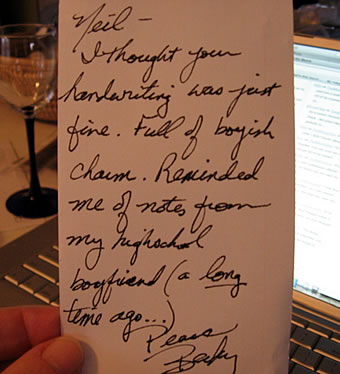 Neil -
I thought your
handwriting was just
fine. Full of boyish
charm. Reminded
me of notes from
my highschool
boyfriend (a long
time ago...)
Peace
Becky